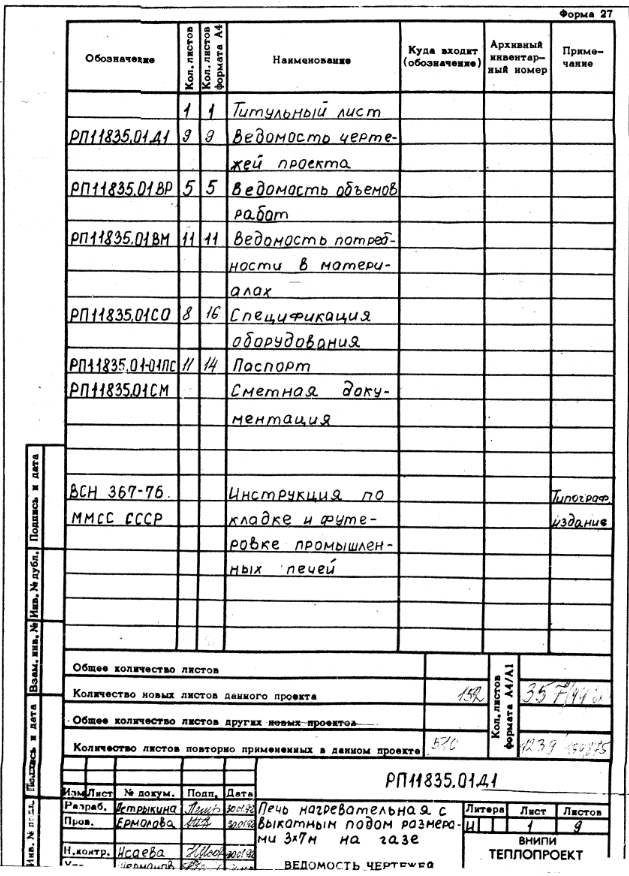 Форма 27
Обозначение
Кол. листов
Кол. листов формата А4
Наименование
Куда входит (обозначение)
Архивный инвентарный номер
Примечание
1 1 Титульный лист
РП11835.01Д1 9 9 Ведомость черте-
жей проекта
РП11835.01ВР 5 5 Ведомость объемов
работ
РП11835.01ВМ 11 11 Ведомость потреб-
ности в матери-
алах
РП11835.01СО 8 16 Спецификация
оборудования
РП11835.01-01ПС 11 14 Паспорт
РП11835.01СМ Сметная доку-
ментация
ВСН 367-76. Инструкция по Типограф.
ММСС СССР кладке и футе- издание
ровке промышлен-
ных печей
Общее количество листов
Количество новых листов данного проекта 152
Общее количество листов других новых проектов
Количество листов повторно примененных в данном проекте
Кол. листов формата А4/А1
РП11835.01Д1
Изм Лист № докум. Подп. Дата
Разраб. Петрыкина
Пров. Ермолова
Н.контр. Исаева
Печь нагревательная с
выкатным подом размера-
ми 3х7м на газе
ВЕДОМОСТЬ ЧЕРТЕЖЕЙ
Литера Лист Листов
И 1 9
ВНИПИ
ТЕПЛОПРОЕКТ
Подпись и дата
Инв. № дубл.
Взам. инв. №
Подпись и дата
Инв. № подл.